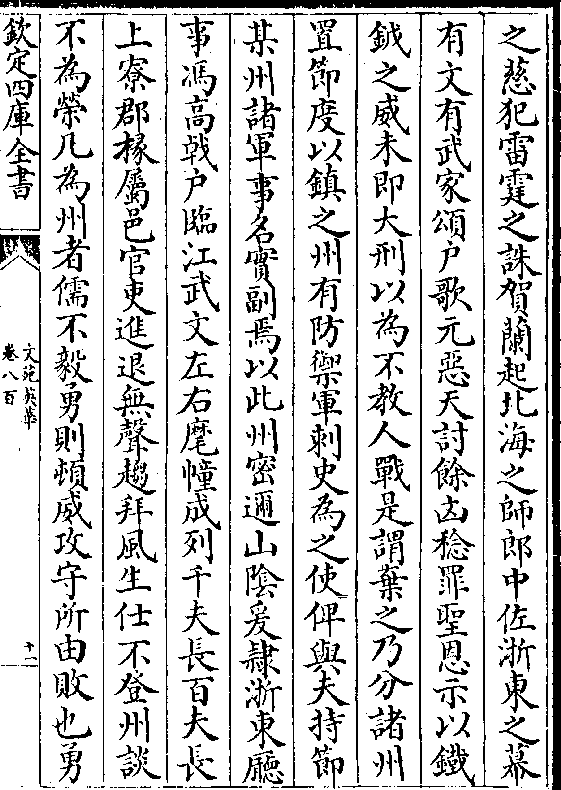 之慈犯雷霆之誅賀蘭起北海之師郎中佐浙東之幕
有文有武家頌户歌元惡天討餘凶稔罪聖恩示以鐵
鉞之威未即大刑以為不教人戰是謂棄之乃分諸州
置節度以鎮之州有防禦軍刺史為之使俾與夫持節
某州諸軍事名實副焉以此州密邇山陰爰隷浙東廳
事馮高戟户臨江武文左右麾幢成列千夫長百夫長
上寮郡掾屬邑官吏進退無聲趨拜風生仕不登州談
不為榮凡為州者儒不毅勇則頓威攻守所由敗也勇
欽定四庫全書
文苑英華
卷八百
十一